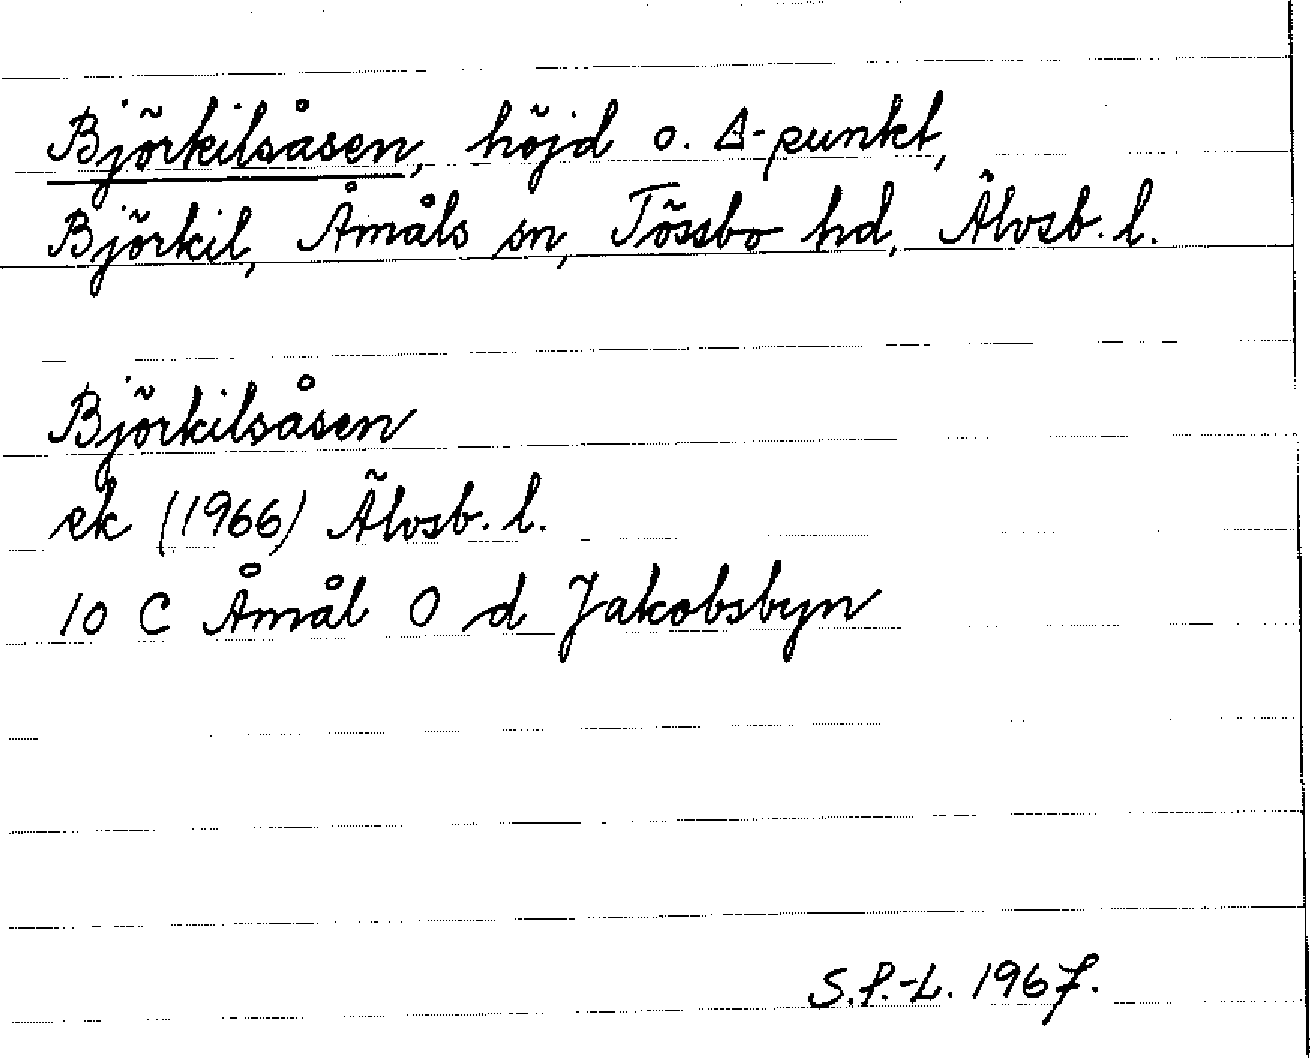 Björkilsåsen, höjd o. Δ-punkt,
Björkil, Åmåls sn, Tössbo hd, Älvsb. l.
Björkilsåsen
ek (1966) Älvsb. l.
10 C Åmål 0 d Jakobsbyn
S.P.-L. 1967.